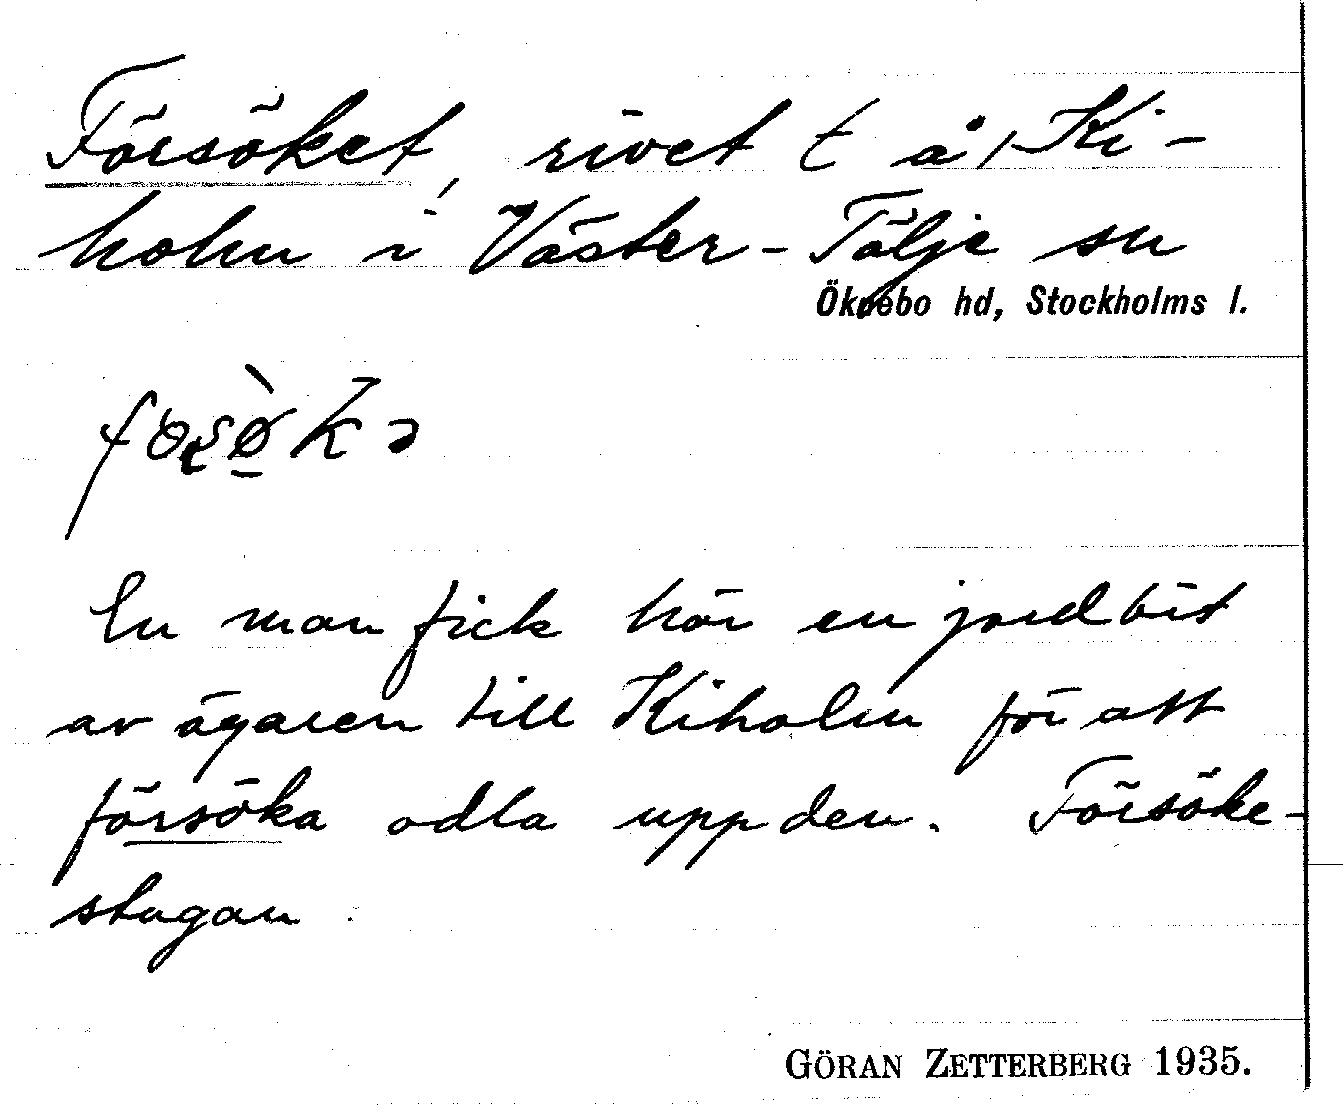 Försöket, rivet t å, Ki-
holm i Väster-Tälje sn
Öknebo hd, Stockholms l.
En man fick här en jordbit
av ägaren till Kiholm för att
försöka odla upp den. Försöke-
stugan
GÖRAN ZETTERBERG 1935.